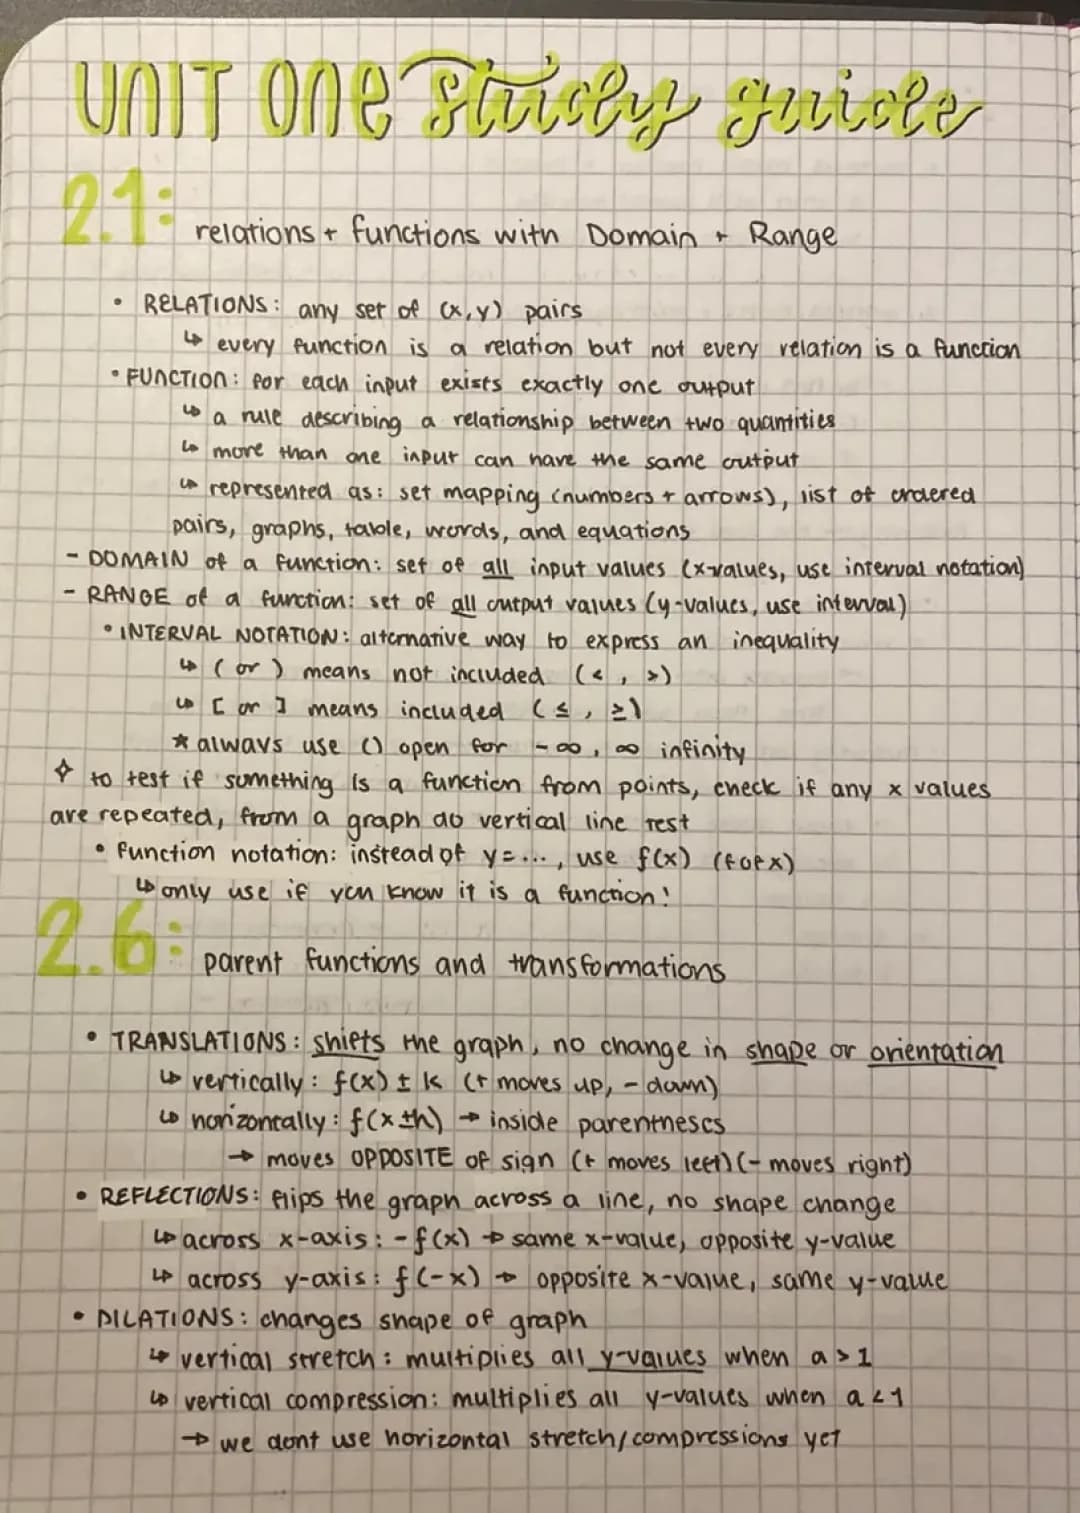 UNIT One study guide
2.1: relations + functions with Domain + Range
• RELATIONS: any set of (x,y) pairs
↳ every function is a relation but not every relation is a function
• FUNCTION: for each input exists exactly one output
↳ a rule describing a relationship between two quantities
↳ more than one input can have the same output
↳ represented as: set mapping (numbers + arrows), list of ordered
pairs, graphs, table, words, and equations
- DOMAIN of a function: set of all input values (x-values, use interval notation)
- RANGE of a function: set of all output values (y-values, use interval)
• INTERVAL NOTATION: alternative way to express an inequality
↳ ( or ) means not included (<, >)
↳ [ or ] means included (≤, ≥)
★ always use () open for -∞, ∞ infinity
✧ to test if something is a function from points, check if any x values
are repeated, from a graph do vertical line test
• function notation: instead of y=..., use f(x) (f of x)
↳ only use if you know it is a function!
2.6: parent functions and transformations
• TRANSLATIONS: shifts the graph, no change in shape or orientation
↳ vertically: f(x) ± k (+ moves up, - down)
↳ horizontally: f(x±h) → inside parentheses
→ moves OPPOSITE of sign (+ moves left) (- moves right)
• REFLECTIONS: flips the graph across a line, no shape change
↳ across x-axis: -f(x) → same x-value, opposite y-value
↳ across y-axis: f(-x) → opposite x-value, same y-value
• DILATIONS: changes shape of graph
↳ vertical stretch: multiplies all y-values when a > 1
↳ vertical compression: multiplies all y-values when a < 1
→ we dont use horizontal stretch/compressions yet